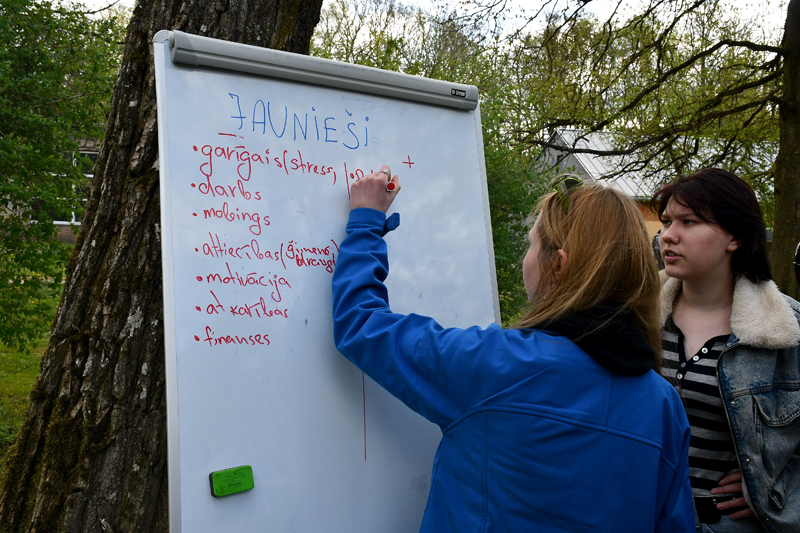 JAUNIEŠI
• garīgais (stress, +
• darbs
• mobings
• attiecības (ģimene,
draugi)
• motivācija
• atkarības
• finanses